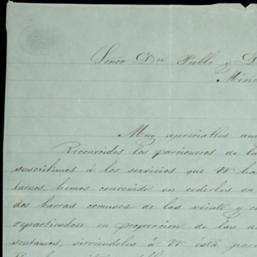 Senor Don Pablo y D
Muy apreciables am
Reconocidos los parcioneros de la
suscribimos á los servicios que V ha
tamos, hemos convenido en cederles en
dos barras comunes de las veinte y cu
repartiendose en proporcion de las ac
sentamos, sirviendoles á V esta para